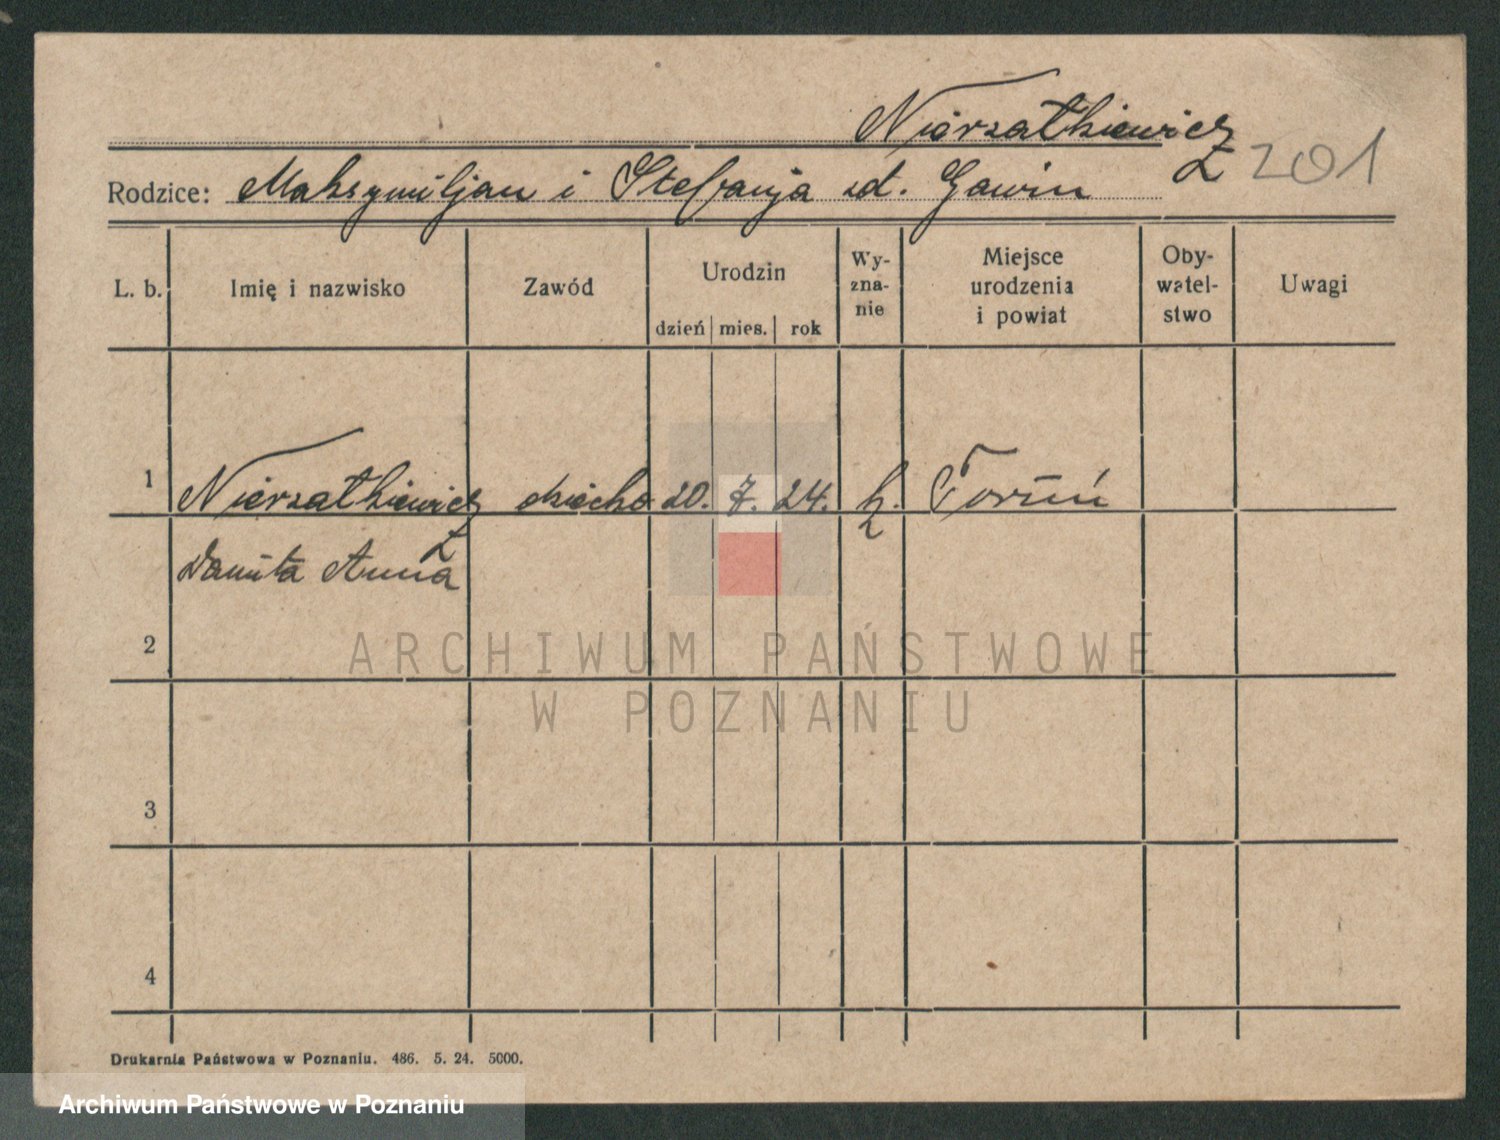 Nierzatkiewicz 201
Rodzice: Maksymiljan i Stefanja zd. Gawin
L. b. Imię i nazwisko Zawód Urodzin dzień mies. rok Wy-zna-nie Miejsce urodzenia i powiat Oby-watel-stwo Uwagi
1 Nierzatkiewicz dziecko 20. 7. 24. k. Toruń
Danuta Anna
2
ARCHIWUM PAŃSTWOWE
W POZNANIU
3
4
Drukarnia Państwowa w Poznaniu. 486. 5. 24. 5000.
Archiwum Państwowe w Poznaniu